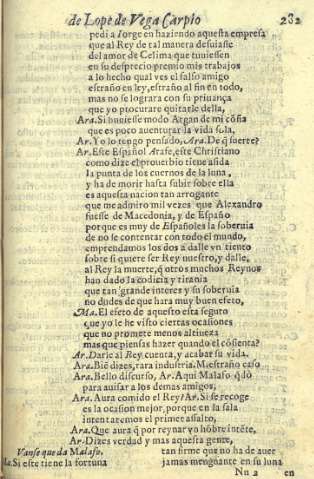 de Lope de Vega Carpio 282
pedi a Iorge en haziendo aquesta empresa
que al Rey de tal manera desuiasse
del amor de Celima que tuuiessen
en su desprecio premio mis trabajos
a lo hecho qual ves el falso amigo
estraño en ley, estraño al fin en todo,
mas no se lograra con su priuança
que yo procurarè quitarle della,
Ara. Si huuiesse modo Argan de mi cõsia
que es poco auenturar la vida sola,
Ar. Yo lo tengo pensado. Ara. De q̃ suerte?
Ar. Este Español Arafe, este Christiano
como dize el prouerbio tiene asida
la punta de los cuernos de la luna,
y ha de morir hasta subir sobre ella
es aquesta nacion tan arrogante
que me admiro mil vezes que Alexandro
fuesse de Macedonia, y de España
porque es muy de Españoles la soberuia
de no se contentar con todo el mundo,
emprendamos los dos a dalle vn tiento
sobre si quiere ser Rey nuestro, y dalle,
al Rey la muerte, q̃ otros muchos Reynos
han dado la codicia y tirania
que tan grande interes y su soberuia
no dudes de que hara muy buen efeto,
Ma. El efeto de aquesto esta seguro
que yo le he visto ciertas ocasiones
que no promete menos altiueza
mas que piensas hazer quando el cõsienta?
Ar. Darle al Rey cuenta, y acabar su vida.
Ara. Biẽ dizes, rara industria. Ma. estraño caso
Ara. Bello discurso, Ar. Aqui Malafo q̃dò
para auisar a los demas amigos,
Ara. Aura comido el Rey? Ar. Si se recoge
es la ocasion mejor, porque en la sala
intentaremos el primer assalto,
Ara. Que aura q̃ por reinar vn hõbre intẽte,
Ar. Dizes verdad y mas aquesta gente,
Vanse queda Malafo, tan firme que no ha de auer
Ma. Si este tiene la fortuna jamas menguante en su luna
Nn 2 en